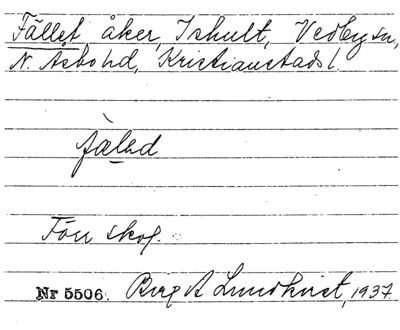 Fället åker, Ishult, Vedby sn,
N. Åsbo hd, Kristianstads l.
fæləd
Förr skog.
Nr 5506. Birg A Lundkvist, 1937